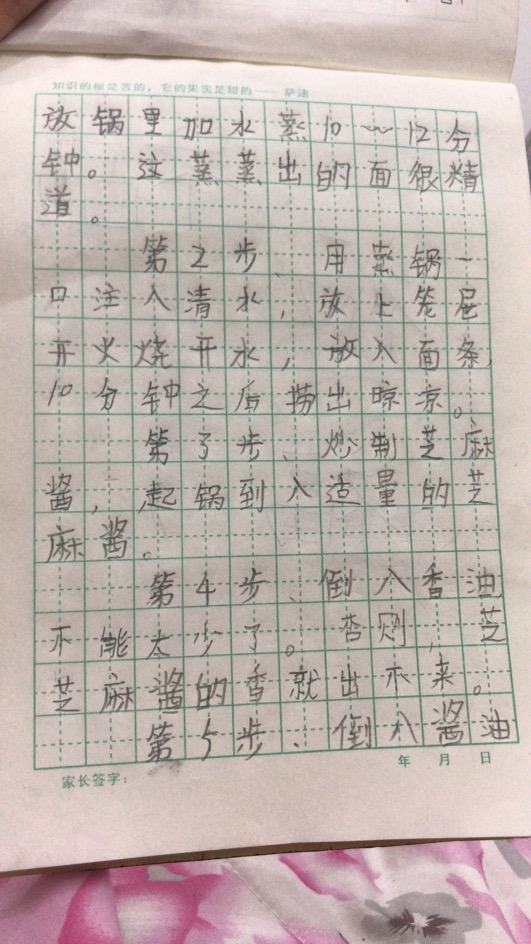 知识的根是苦的，它的果实是甜的 —— 萨迪
放锅里加水蒸10～12分
钟。这蒸蒸出的面很精
道。
第2步、用蒸锅一
口注入清水，放上笼屉
开火烧开水，放入面条，
10分钟之后捞出晾凉。
第3步、炒制芝麻
酱，起锅到入适量的芝
麻酱。
第4步、倒入香油，
不能太少了。否则，芝
芝麻酱的香就出不来。
第5步、倒入酱油
年 月 日
家长签字：